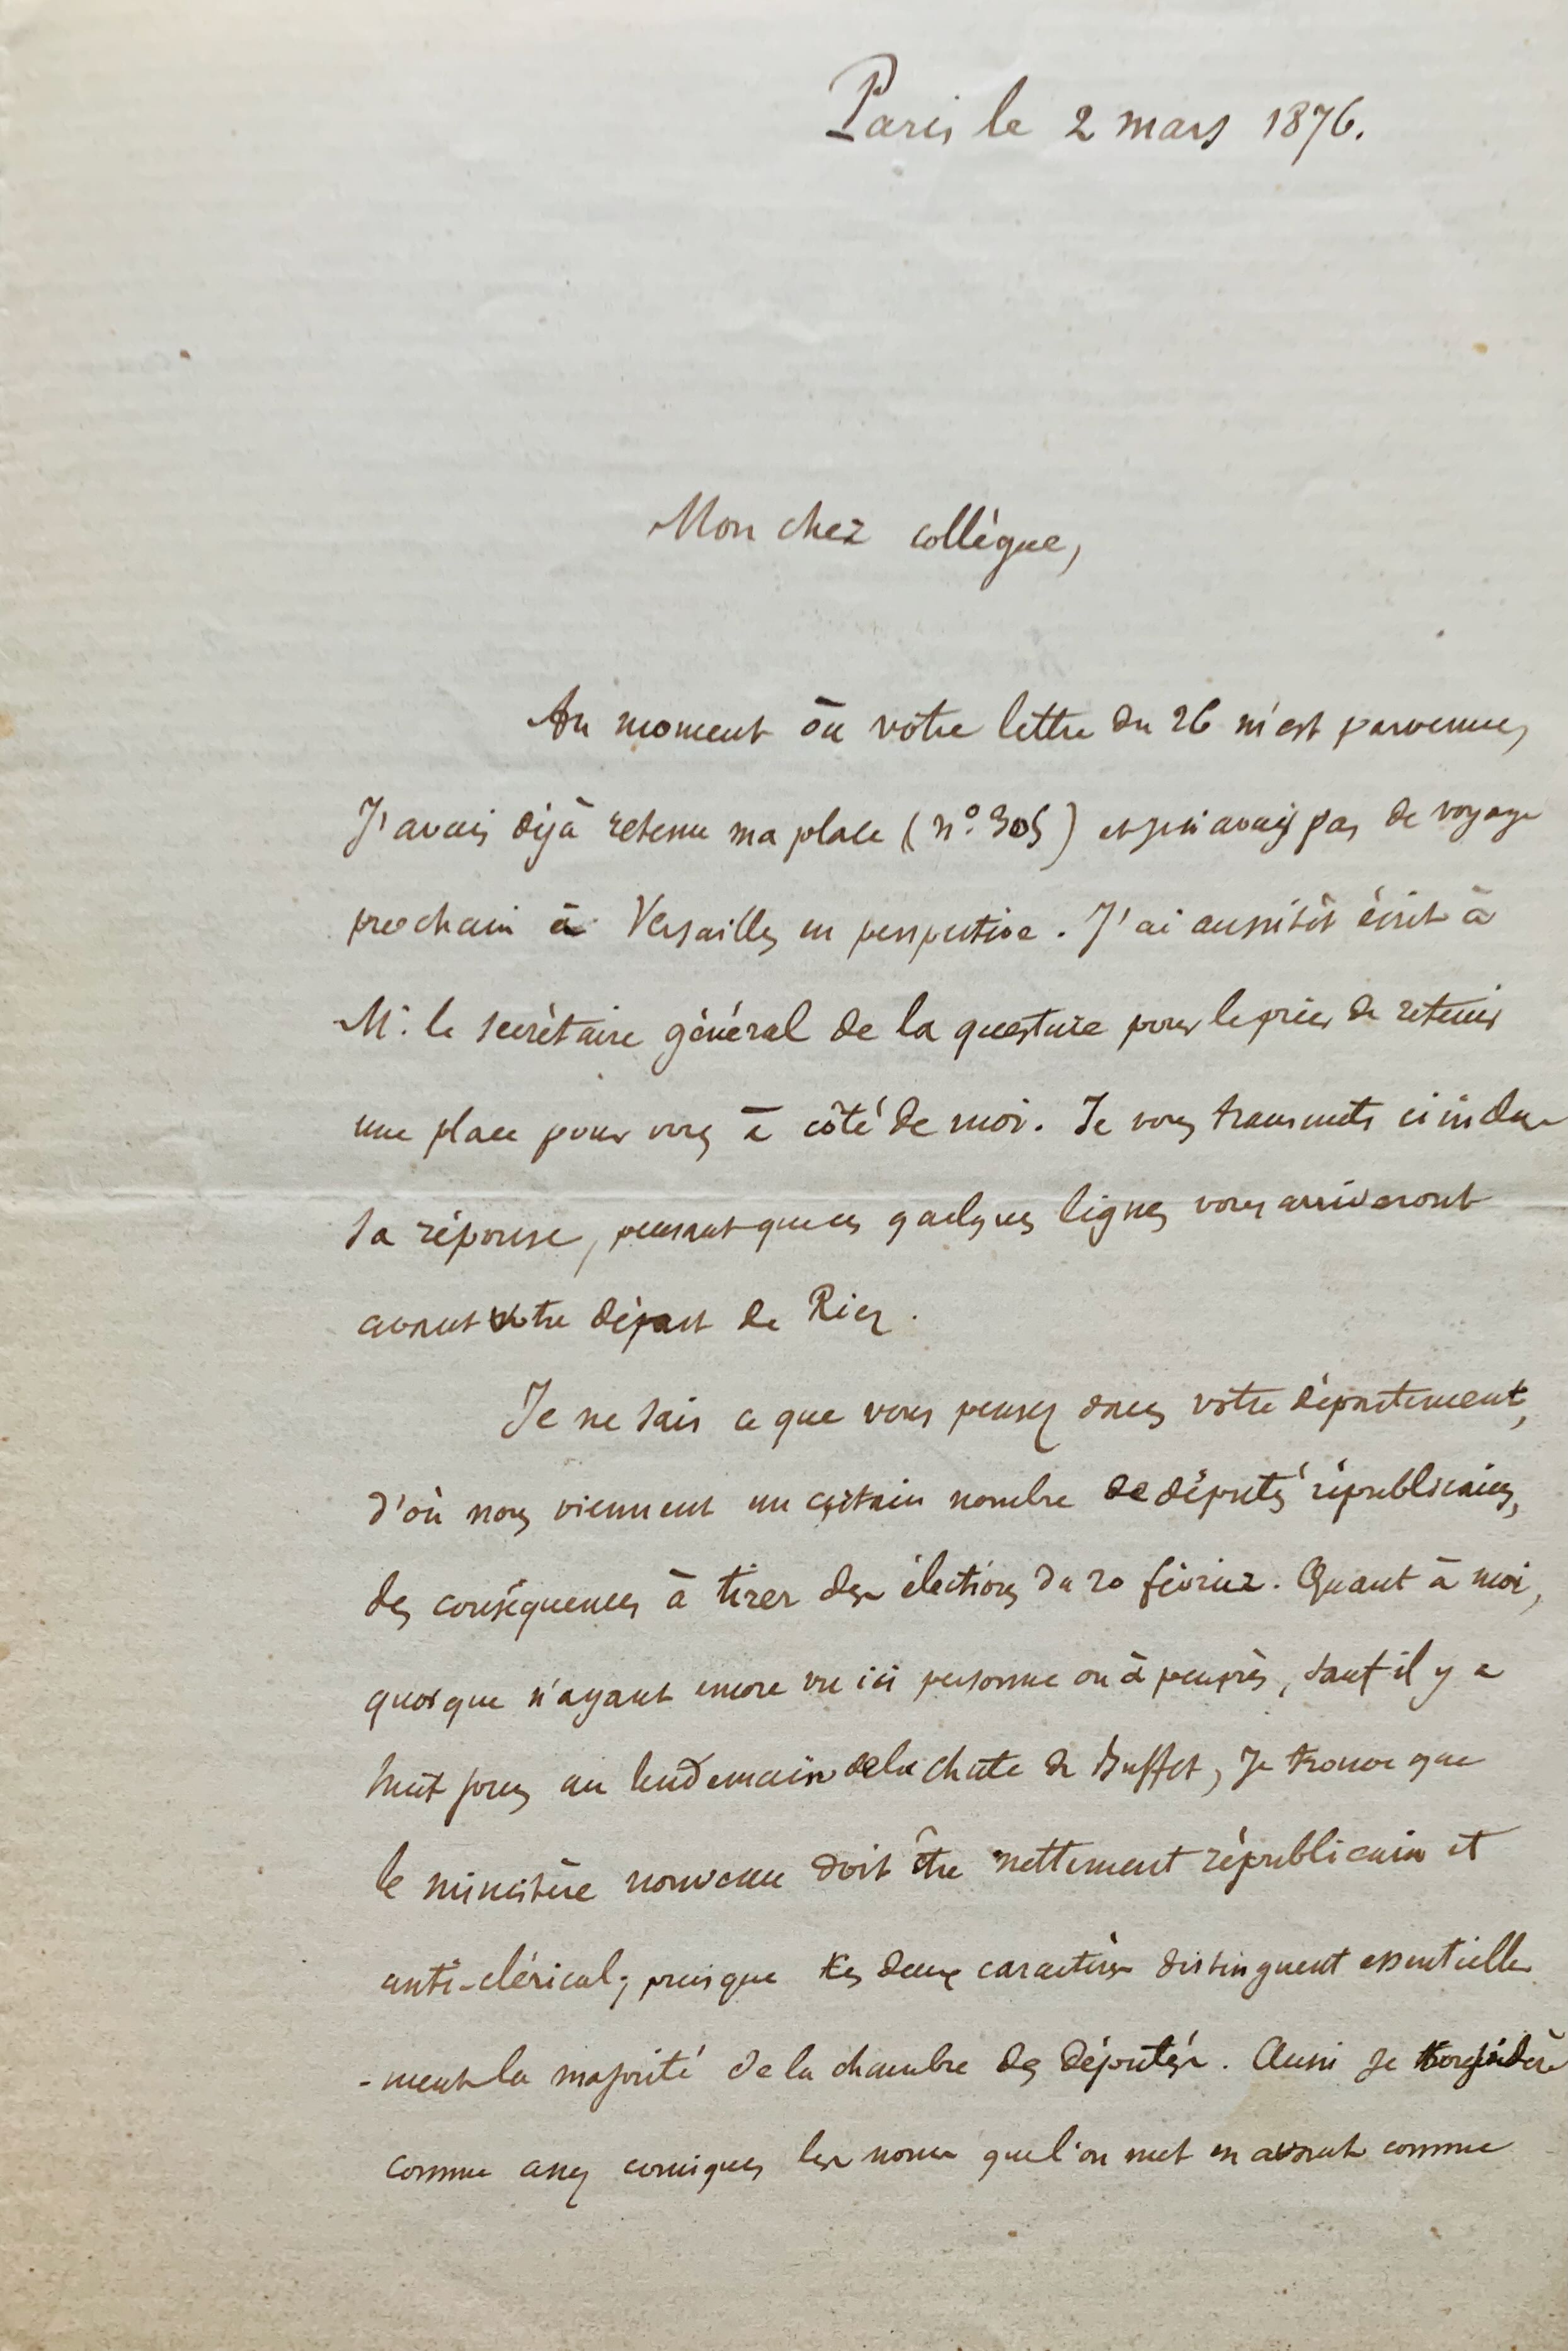 Paris le 2 mars 1876.
Mon cher collègue,
Au moment où votre lettre du 26 m'est parvenue,
J'avais déjà retenu ma place (n° 305) et je n'avais pas de voyage
prochain à Versailles en perspective. J'ai aussitôt écrit à
Mr le secrétaire général de la questure pour le prier de retenir
une place pour vous à côté de moi. Je vous transmets ci incluse
sa réponse, pensant que ces quelques lignes vous arriveront
avant votre départ de Riez.
Je ne sais ce que vous pensez dans votre département,
d'où nous viennent un certain nombre de députés républicains,
des conséquences à tirer des élections du 20 février. Quant à moi,
quoique n'ayant encore vu ici personne ou à peu près, sauf il y a
huit jours au lendemain de la chute de Buffet, je trouve que
le ministère nouveau doit être nettement républicain et
anti-clérical; puisque ces deux caractères distinguent essentielle
-ment la majorité de la chambre des députés. Aussi je considère
comme assez comiques les noms que l'on met en avant comme